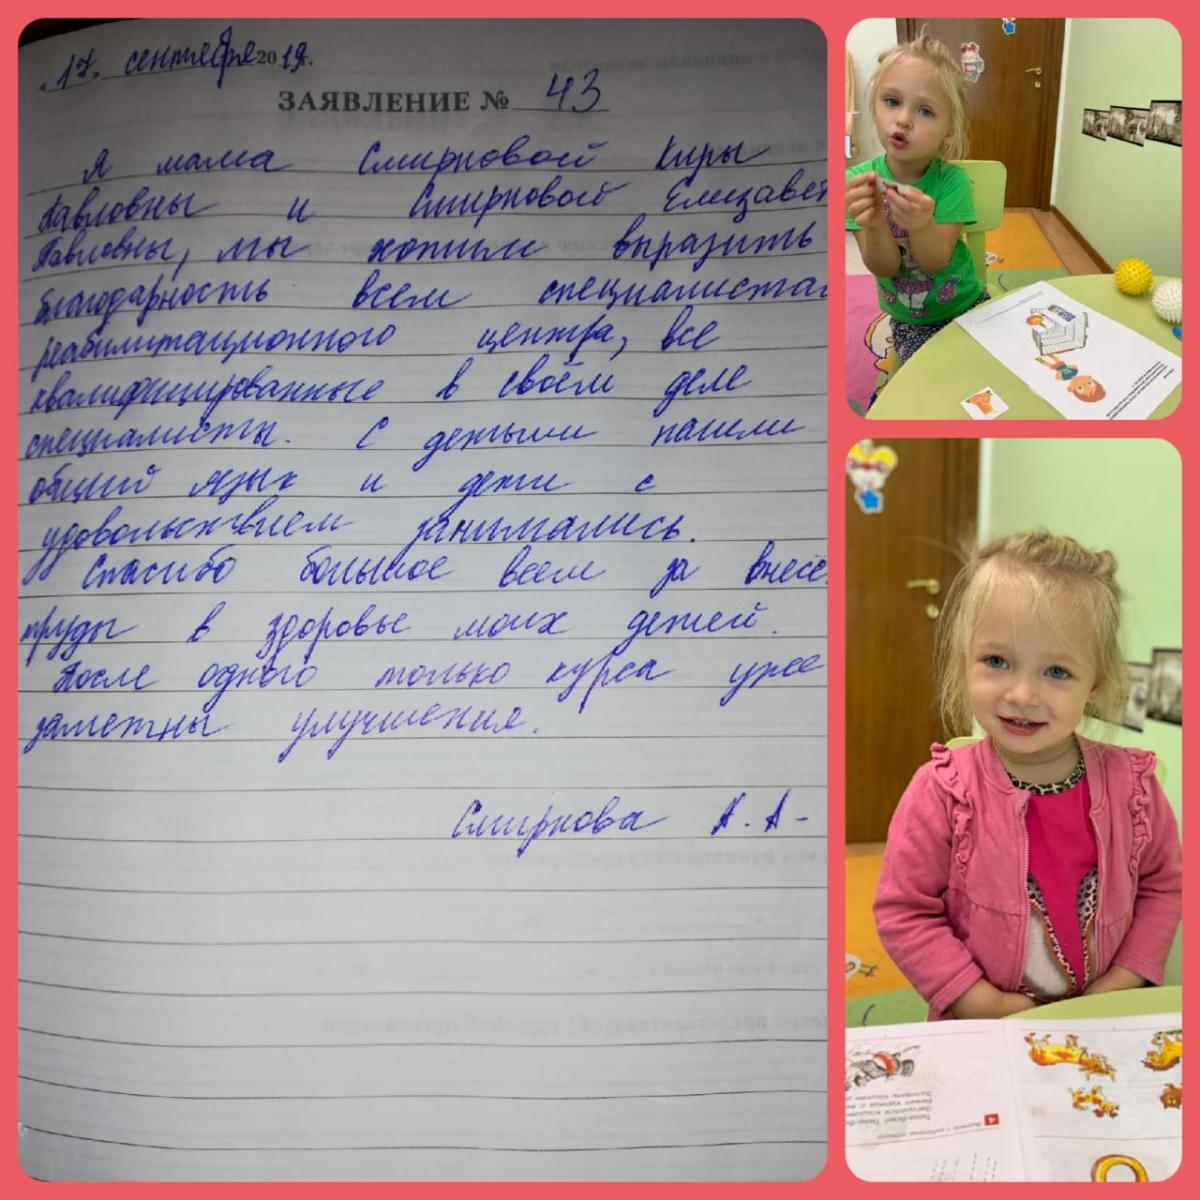 „17" сентября 2019 г.
ЗАЯВЛЕНИЕ № 43
Я мама Смирновой Киры
Павловны и Смирновой Елизавет
Павловны, мы хотим выразить
благодарность всем специалистам
реабилитационного центра, все
квалифицированные в своём деле
специалисты. С детьми нашли
общий язык и дети с
удовольствием занимались.
Спасибо большое всем за внесён
труды в здоровье моих детей.
После одного только курса уже
заметны улучшения.
Смирнова А. А-
4